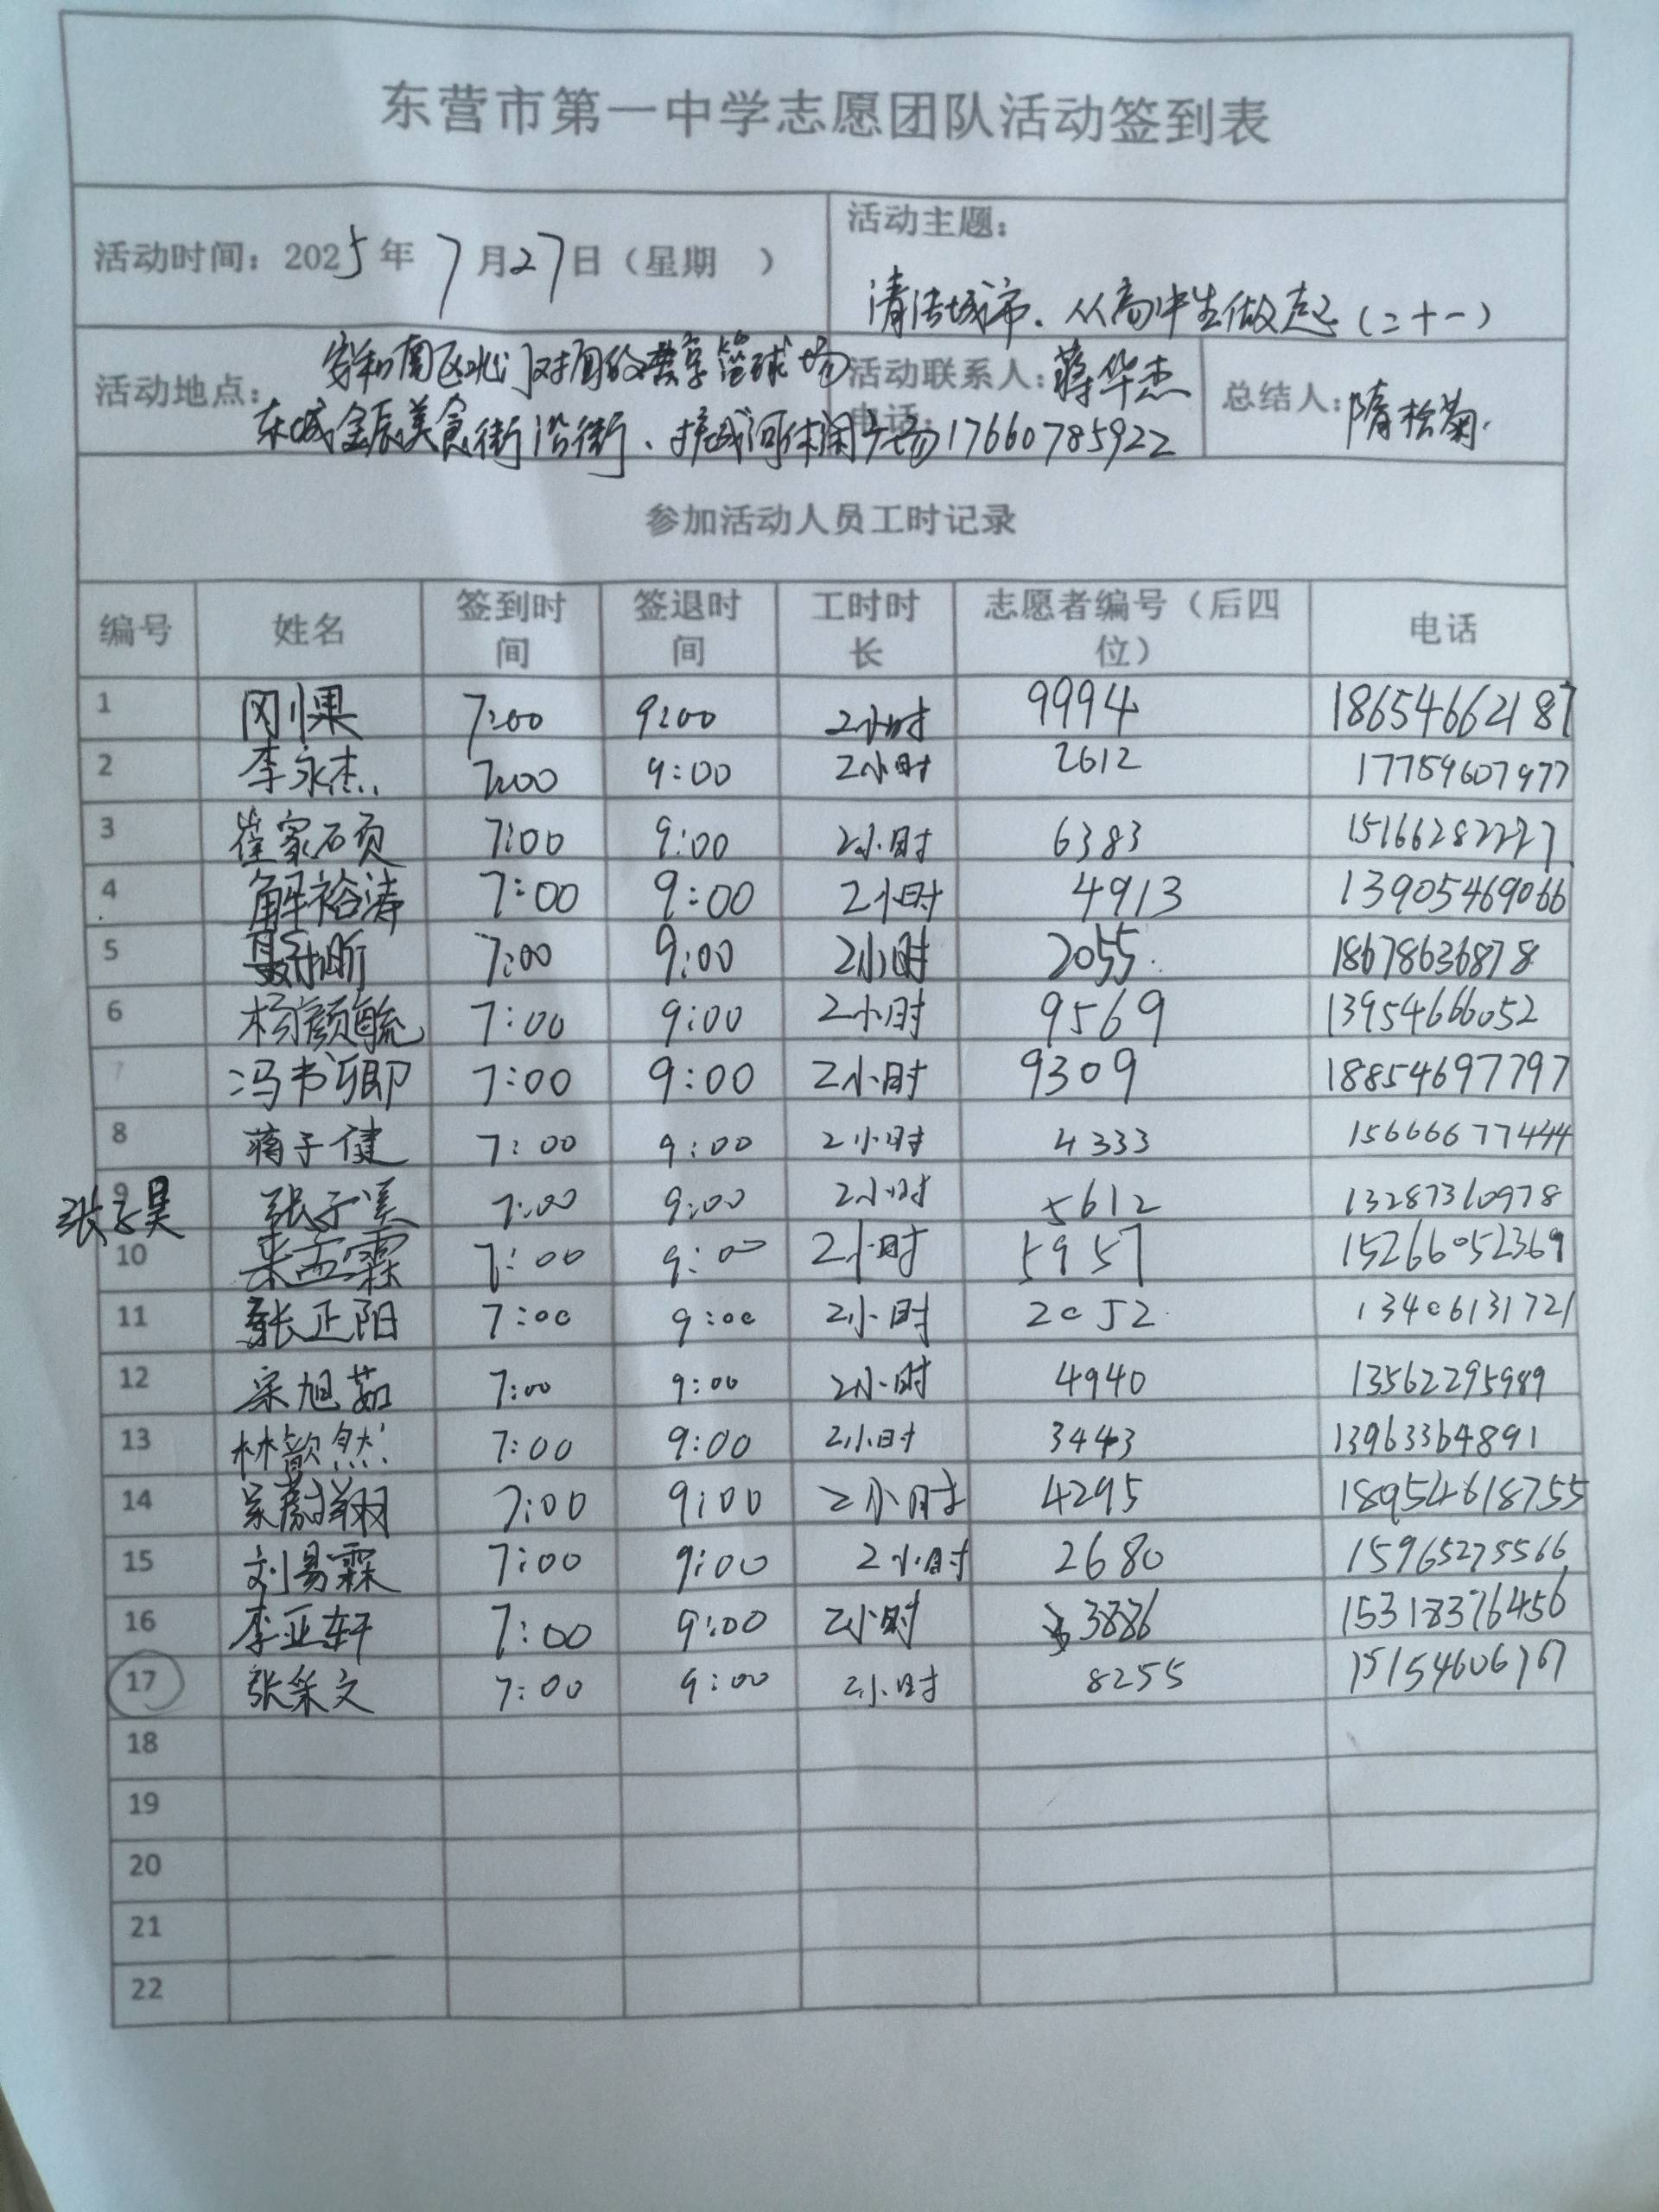 东营市第一中学志愿团队活动签到表
活动时间：2025年 7月27日（星期 ） 活动主题：
清洁城市、从高中生做起（二十一）
活动地点： 安和南区北门对面的共享篮球场
东城金辰美食街沿街、护城河休闲广场
活动联系人：蒋华杰
电话：17660785922
总结人：隋松菊
参加活动人员工时记录
编号 姓名 签到时间 签退时间 工时时长 志愿者编号（后四位） 电话
1 刚果 7:00 9:00 2小时 9994 18654662187
2 李永杰 7:00 9:00 2小时 2612 17759607977
3 崔家硕 7:00 9:00 2小时 6383
4 解裕涛 7:00 9:00 2小时 4913 13905469066
5 7:00 9:00 2小时 2055 18678636878
6 杨颜毓 7:00 9:00 2小时 9569 13954666052
7 冯书卿 7:00 9:00 2小时 9309 18854697797
8 蒋子健 7:00 9:00 2小时 4333 15666677444
9 张子昊 7:00 9:00 2小时 5612 13287310978
10 来孟霖 7:00 9:00 2小时 5957 15266052369
11 张正阳 7:00 9:00 2小时 2052 13406131721
12 宋旭茹 7:00 9:00 2小时 4940 13562295989
13 林歆然 7:00 9:00 2小时 3443 13963364891
14 7:00 9:00 2小时 4295 18954618755
15 刘易霖 7:00 9:00 2小时 2680 15965275566
16 李亚轩 7:00 9:00 2小时 3886 15318376456
17 张采文 7:00 9:00 2小时 8255 15154606767
18
19
20
21
22